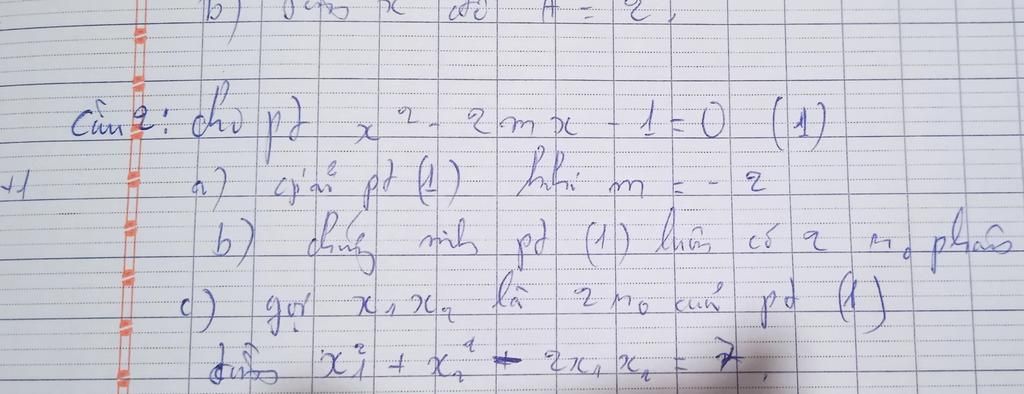 b) x A = 2,
Câu 2: cho pt x² - 2mx - 1 = 0 (1)
+1
a) giải pt (1) khi m = - 2
b) chứng minh pt (1) luôn có 2 n₀ phân
c) gọi x₁ x₂ là 2 n₀ của pt (1)
x₁² + x₂² - 2x₁ x₂ = 7.